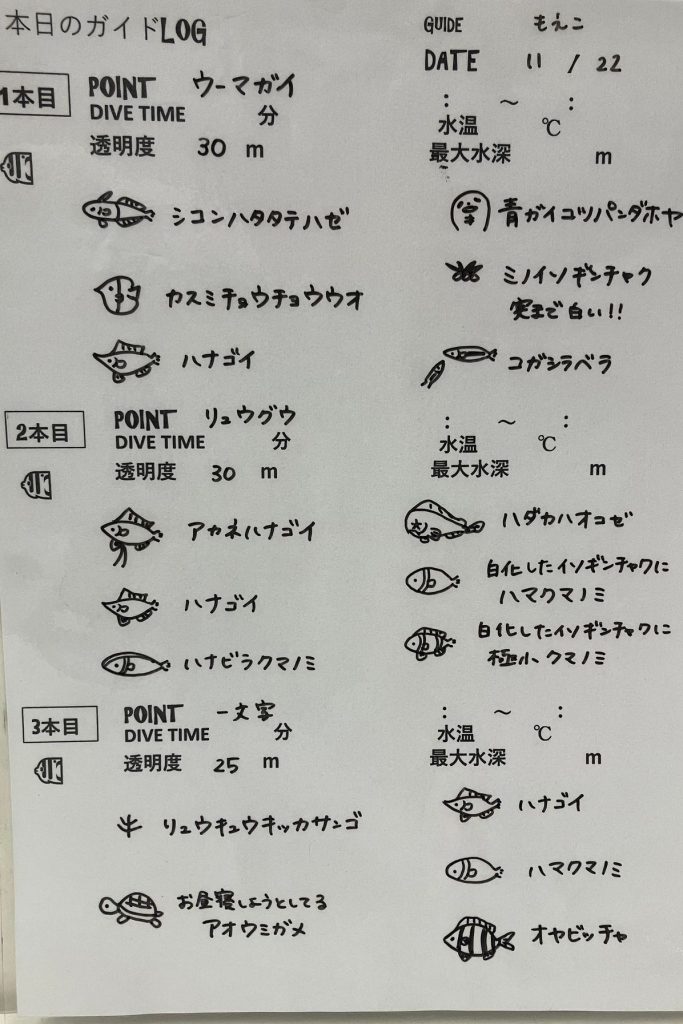 本日のガイドLOG
GUIDE もえこ
DATE 11 / 22
1本目
POINT ウーマガイ
DIVE TIME 分
: ～ :
水温 ℃
透明度 30 m
最大水深 m
シコンハタタテハゼ
青ガイコツパンダホヤ
カスミチョウチョウウオ
ミノイソギンチャク
実まで白い!!
ハナゴイ
コガシラベラ
2本目
POINT リュウグウ
DIVE TIME 分
: ～ :
水温 ℃
透明度 30 m
最大水深 m
アカネハナゴイ
ハダカハオコゼ
ハナゴイ
白化したイソギンチャクに
ハマクマノミ
ハナビラクマノミ
白化したイソギンチャクに
極小、クマノミ
3本目
POINT 一文字
DIVE TIME 分
: ～ :
水温 ℃
透明度 25 m
最大水深 m
リュウキュウキッカサンゴ
ハナゴイ
ハマクマノミ
お昼寝しようとしてる
アオウミガメ
オヤビッチャ